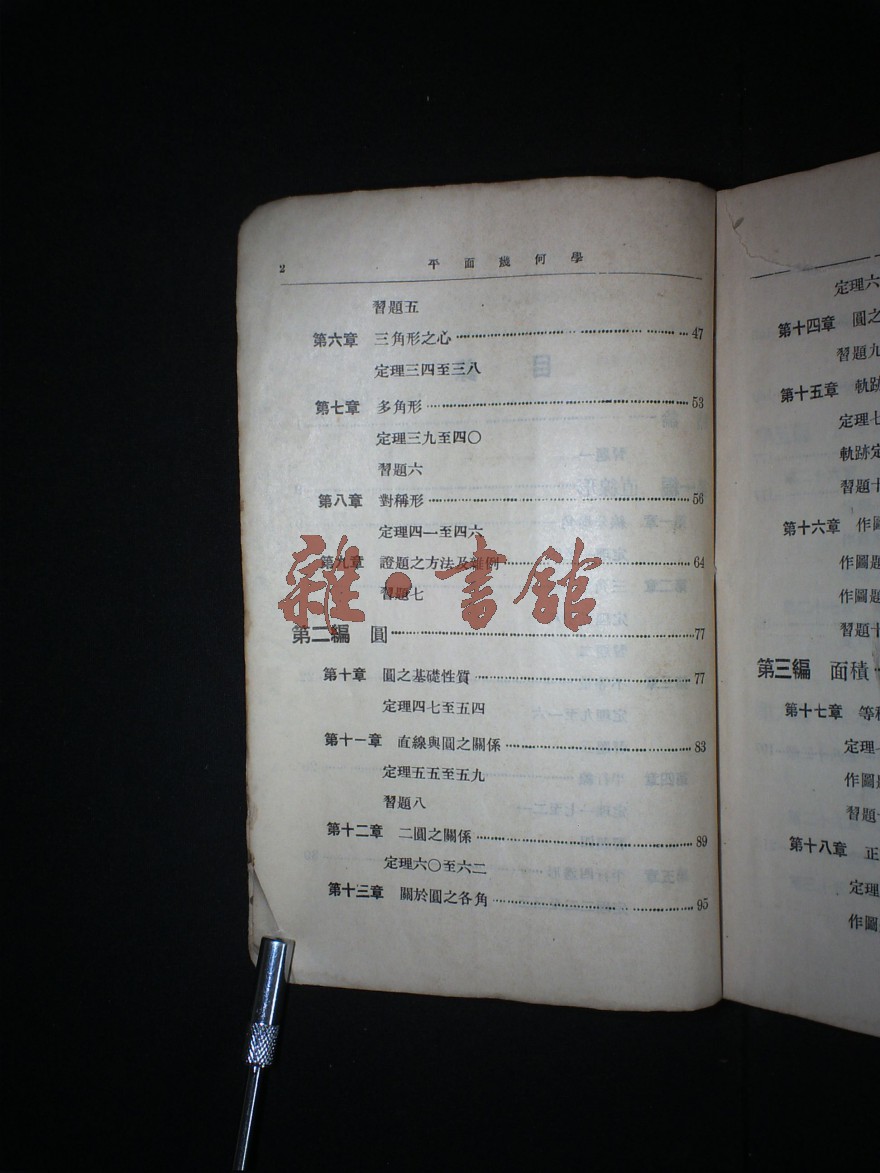 2 平面幾何學
習題五
第六章 三角形之心 47
定理三四至三八
第七章 多角形 53
定理三九至四〇
習題六
第八章 對稱形 56
定理四一至四六
第九章 證題之方法及雜例 64
習題七
第二編 圓 77
第十章 圓之基礎性質 77
定理四七至五四
第十一章 直線與圓之關係 83
定理五五至五九
習題八
第十二章 二圓之關係 89
定理六〇至六二
第十三章 關於圓之各角 95
雜·書館
定理六
第十四章 圓之
習題九
第十五章 軌跡
定理七
軌跡定
習題十
第十六章 作圖
作圖題
作圖題
習題十
第三編 面積
第十七章 等積
定理
作圖題
習題十
第十八章 正
定理
作圖